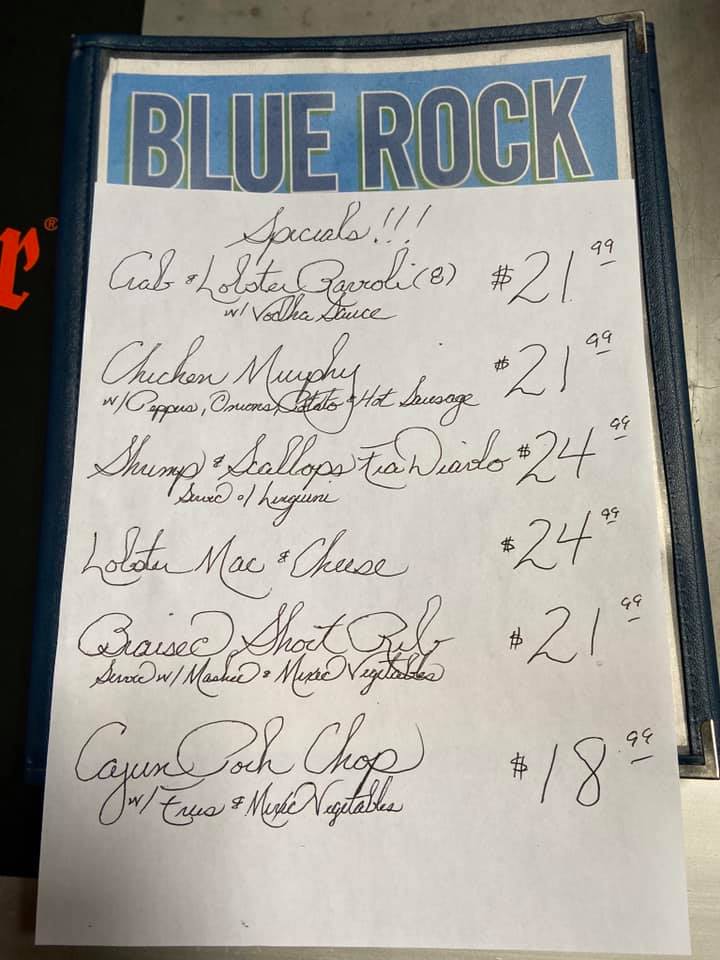 BLUE ROCK
r®
Specials!!!
Crab & Lobster Ravioli (8) $21.99
w/ Vodka Sauce
Chicken Murphy $21.99
w/ Peppers, Onions, Potato & Hot Sausage
Shrimp & Scallops Fra Diavlo $24.99
Served o/ Linguini
Lobster Mac & Cheese $24.99
Braised Short Rib $21.99
Served w/ Mashed & Mixed Vegetables
Cajun Pork Chop $18.99
w/ Fries & Mixed Vegetables